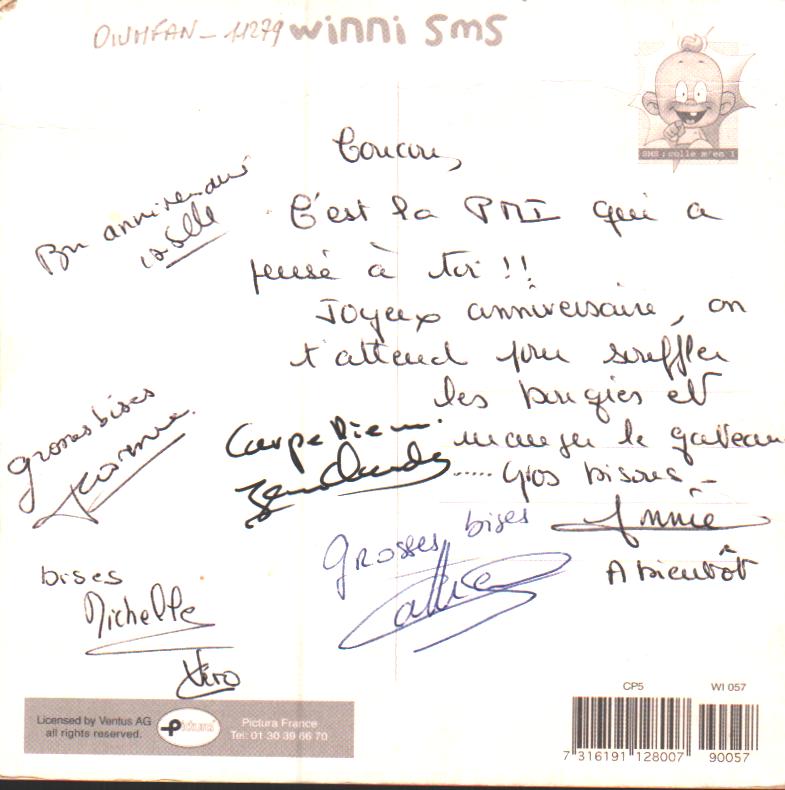 OIUMFAN - 11279
winni sms
SMS : colle m'en 1
Coucou,
Bon anniversaire
C'est la PMI qui a
pensé à toi !!
Joyeux anniversaire, on
t'attend pour souffler
les bougies et
manger le gateau
..... Gros bisous -
Annie
A bientôt
Grosses bises
Carpe Diem.
Jean Claude
Grosses bises
bises
Michelle
Véro
Licensed by Ventus AG
all rights reserved.
Pictura
Pictura France
Tel: 01 30 39 66 70
CP5
WI 057
7 316191 128007
90057